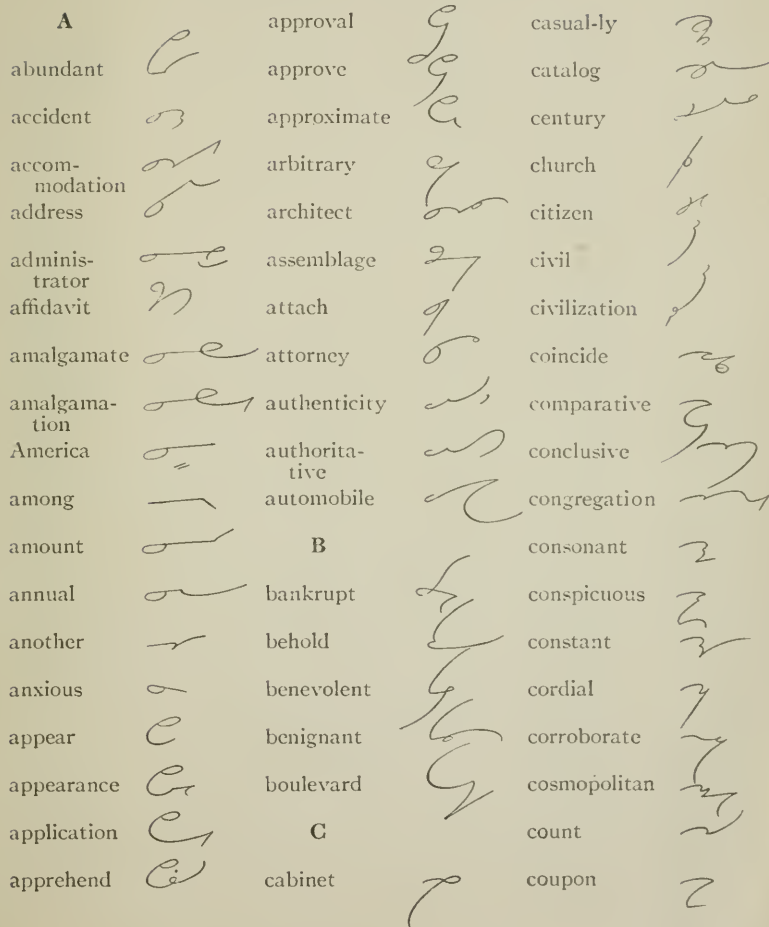 A
abundant
accident
accom-
modation
address
adminis-
trator
affidavit
amalgamate
amalgama-
tion
America
among
amount
annual
another
anxious
appear
appearance
application
apprehend
approval
approve
approximate
arbitrary
architect
assemblage
attach
attorney
authenticity
authorita-
tive
automobile
B
bankrupt
behold
benevolent
benignant
boulevard
C
cabinet
casual-ly
catalog
century
church
citizen
civil
civilization
coincide
comparative
conclusive
congregation
consonant
conspicuous
constant
cordial
corroborate
cosmopolitan
count
coupon